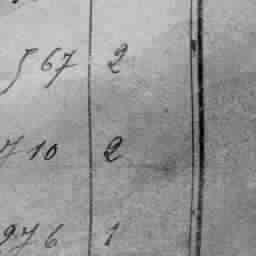 567 2
710 2
976 1